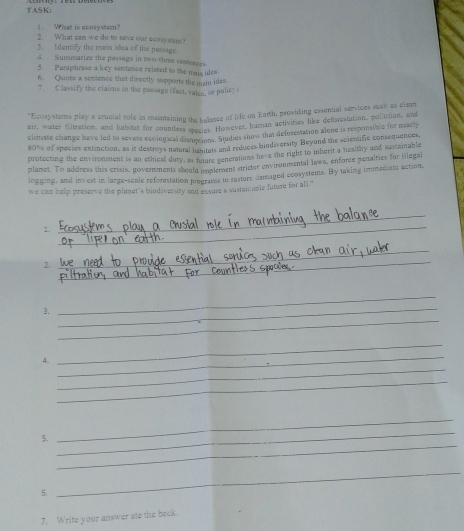 TASK:
1. What is ecosystem?
2. What can we do to save our ecosystem?
3. Identify the main idea of the passage.
4. Summarize the passage in two-three sentences.
5. Paraphrase a key sentence related to the main idea.
6. Quote a sentence that directly supports the main idea.
7. Classify the claims in the passage (fact, value, or policy)
"Ecosystems play a crucial role in maintaining the balance of life on Earth, providing essential services such as clean
air, water filtration, and habitat for countless species. However, human activities like deforestation, pollution, and
climate change have led to severe ecological disruptions. Studies show that deforestation alone is responsible for nearly
80% of species extinction, as it destroys natural habitats and reduces biodiversity. Beyond the scientific consequences,
protecting the environment is an ethical duty, as future generations have the right to inherit a healthy and sustainable
planet. To address this crisis, governments should implement stricter environmental laws, enforce penalties for illegal
logging, and invest in large-scale reforestation programs to restore damaged ecosystems. By taking immediate action,
we can help preserve the planet's biodiversity and ensure a sustainable future for all."
Ecosystems play a crustal role in maintaining the balance
of life on earth.
2. We need to provide essential services such as clean air, water
filtration, and habitat for countless species.
3.
4.
5.
7. Write your answer ate the back.